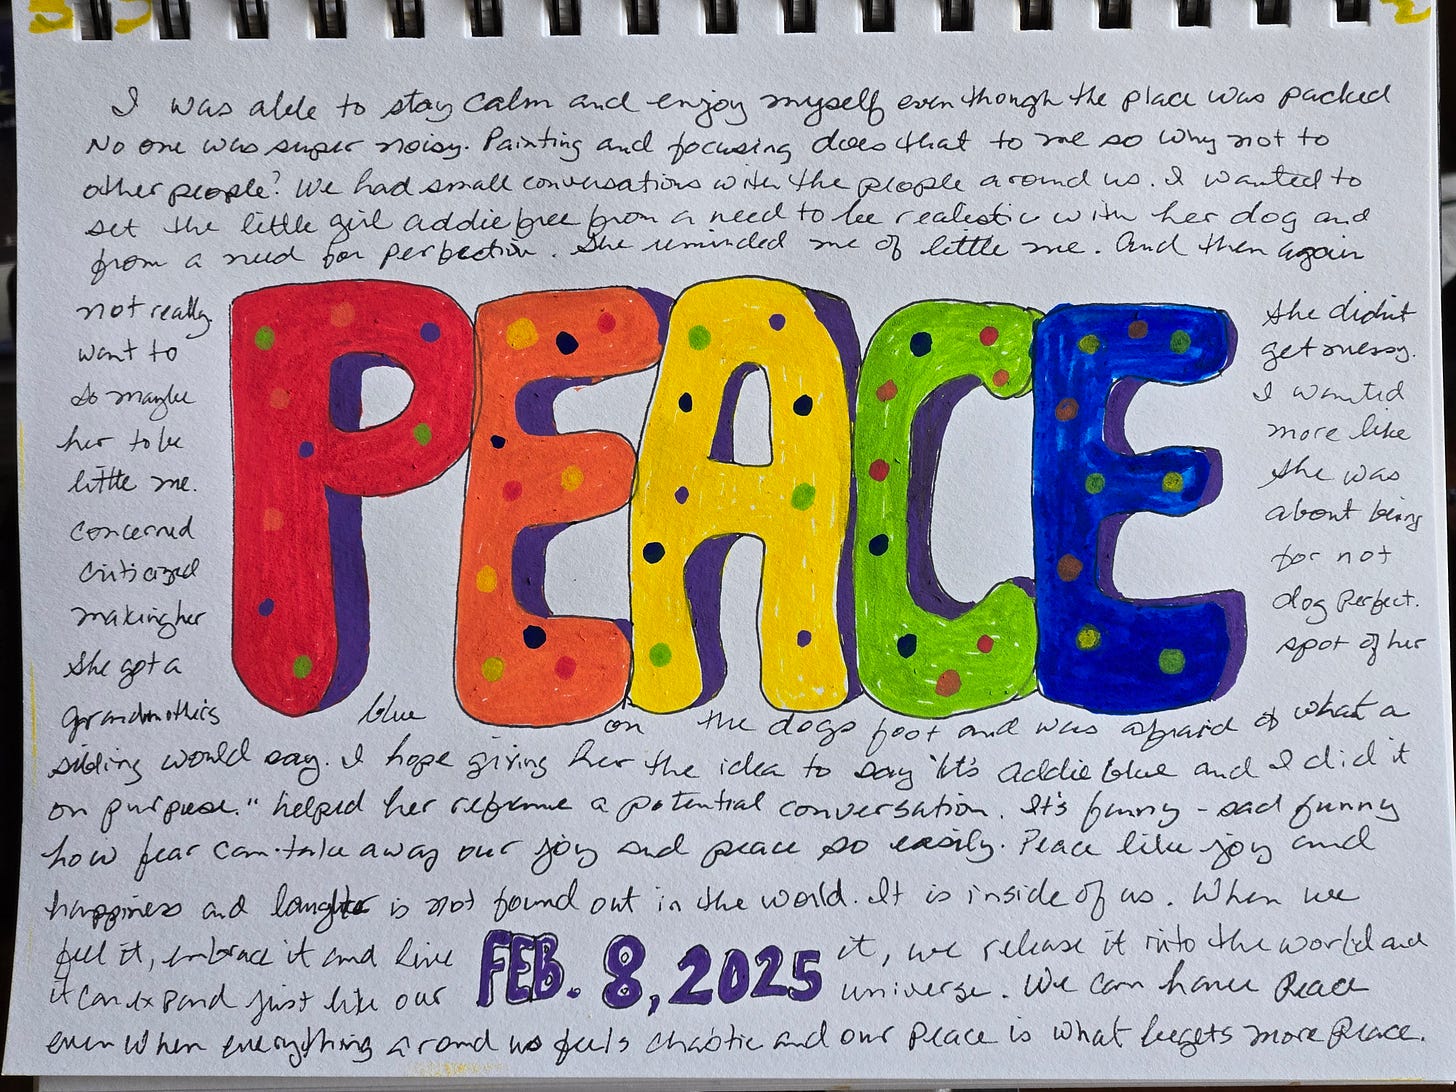 I was able to stay calm and enjoy myself even though the place was packed
No one was super noisy. Painting and focusing does that to me so why not to
other people? We had small conversations with the people around us. I wanted to
set the little girl addie free from a need to be realistic with her dog and
from a need for perfection. She reminded me of little me. And then again
not really she didn't
want to get messy.
so maybe I wanted
her to be more like
little me. She was
concerned about being
criticized for not
making her dog perfect.
She got a spot of her
PEACE
grandmother's blue on the dogs foot and was afraid of what a
sibling would say. I hope giving her the idea to say "It's addie blue and I did it
on purpose." helped her reframe a potential conversation. It's funny - sad funny
how fear can take away our joy and peace so easily. Peace like joy and
happiness and laughter is not found out in the world. It is inside of us. When we
feel it, embrace it and live it, we release it into the world and
it can expand just like our universe. We can have Peace
FEB. 8, 2025
even when everything around us feels chaotic and our peace is what begets more Peace.